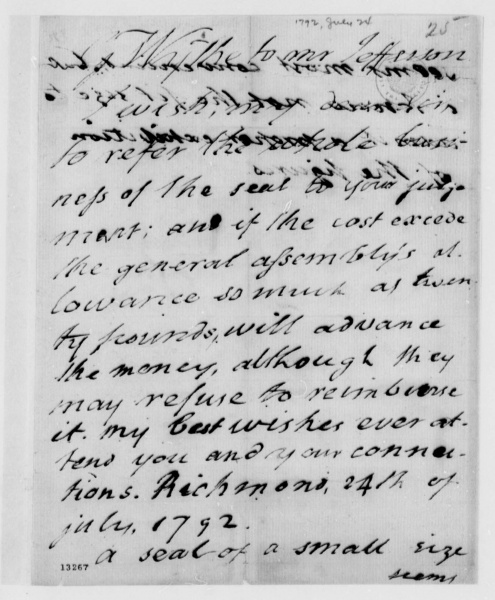 1792, July 24
25
G Wythe to mr Jefferson
I wish, my
to refer the whole busi-
neſs of the seal to your judge
ment; and if the cost excede
the general assembly's al-
lowance so much as twen
ty pounds, will advance
the money, although they
may refuse to reimburse
it. my best wishes ever at-
tend you and your connec-
tions. Richmond, 24th of
july, 1792.
a seal of a small size
seems
13267